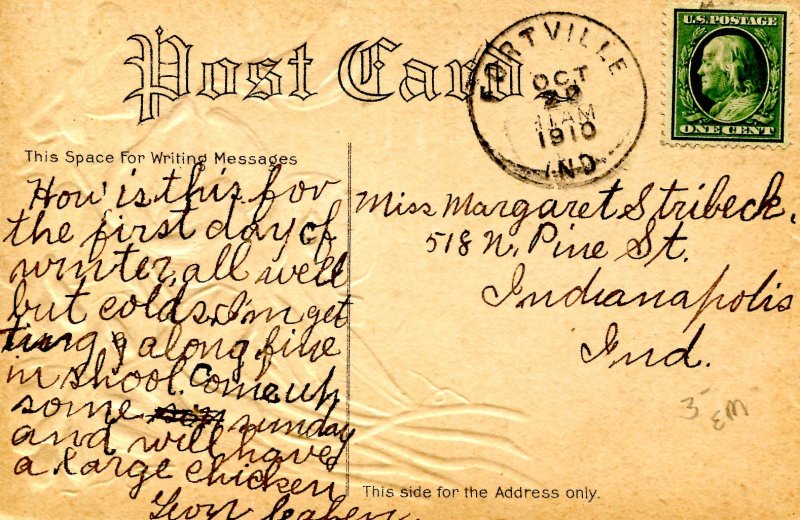 Post Card
U.S. POSTAGE
ONE CENT
FORTVILLE
OCT
11 AM
1910
IND.
This Space For Writing Messages
How is this for
the first day of
winter, all well
but colds, I'm get
ting along fine
in shool. Come up
some sunday
and will have
a large chicken
Miss Margaret Stribeck.
518 N. Pine St.
Indianapolis
Ind.
This side for the Address only.